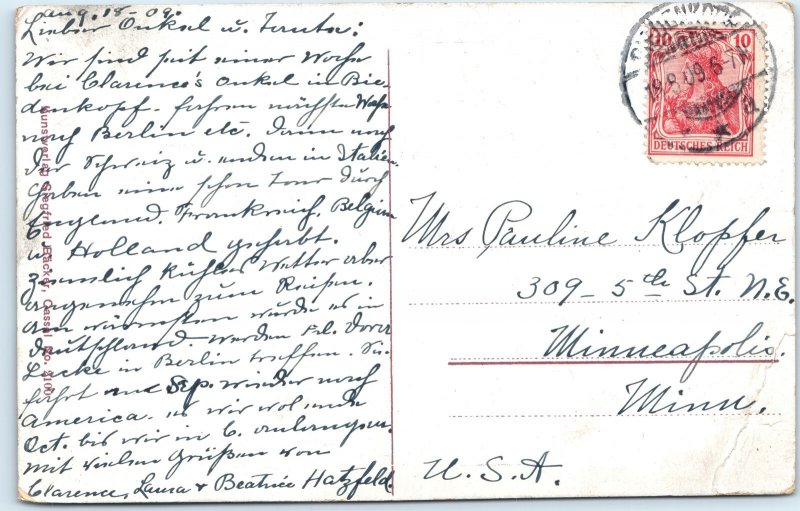 Aug. 18 - 09.
Lieber Onkel u. Tante:
Wir sind seit einer Woche
bei Clarence's Onkel in Bie-
denkopf. fahren nächste Woche
nach Berlin etc. dann nach
der Schweiz u. enden in Italien
haben eine schon Tour durch
England, Frankreich, Belgien
u. Holland gehabt.
Ziemlich kühles Wetter aber
angenehm zum Reisen.
am wärmsten wurde es in
Deutschland. werden Frl. Dora
Lecke in Berlin treffen. Sie
fährt Sep. wieder nach
America. es wir wol ende
Oct. bis wir in
Mit vielen Grüßen von
Clarence, Laura & Beatrice Hatzfeld.
Kunstverlag Siegfried Cassel No. 3100
10
DEUTSCHES REICH
8.09.6-7
Mrs Pauline Klopfer
309 - 5th St. N.E.
Minneapolis.
Minn.
U.S.A.